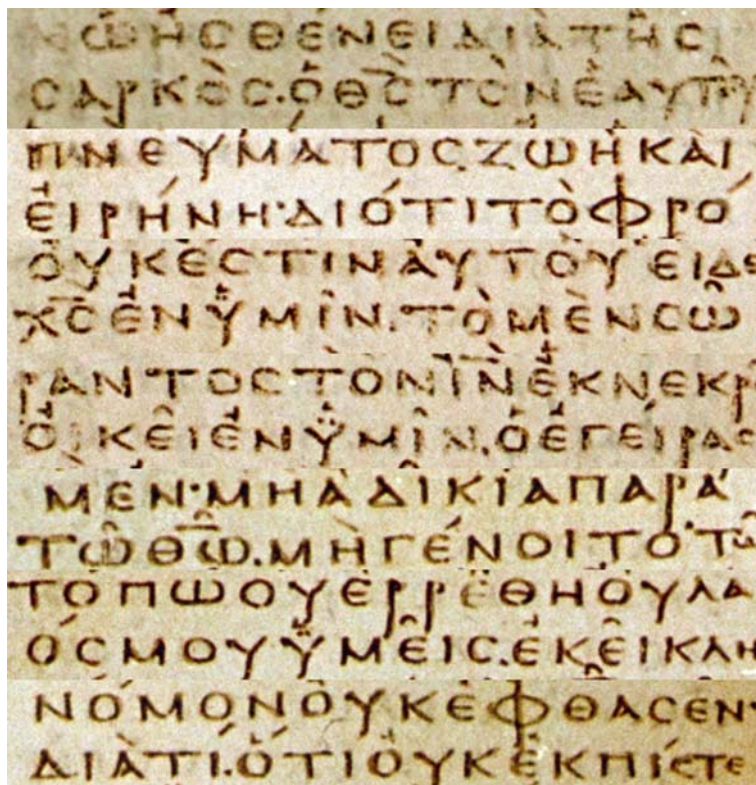 ΩΗϹΘΕΝΕΙΔΙΑΤΗϹ
ϹΑΡΚΟϹ·ΟΘ̅Ϲ̅ΤΟΝΕΑΥΤΟΥ
ΠΝΕΥΜΑΤΟϹΖΩΗΚΑΙ
ΕΙΡΗΝΗ·ΔΙΟΤΙΤΟΦΡΟ
ΟΥΚΕϹΤΙΝΑΥΤΟΥΕΙΔΕ
Χ̅Ϲ̅ΕΝΫΜΙΝ·ΤΟΜΕΝϹΩ
ΡΑΝΤΟϹΤΟΝΙ̅Ν̅ΕΚΝΕΚΡ
ΟΙΚΕΙΕΝΫΜΙΝ·ΟΕΓΕΙΡΑϹ
ΜΕΝ·ΜΗΑΔΙΚΙΑΠΑΡΑ
ΤΩΘ̅Ω̅·ΜΗΓΕΝΟΙΤΟ·ΤΩ
ΤΟΠΩΟΥΕΡΡΕΘΗΟΥΛΑ
ΟϹΜΟΥΫΜΕΙϹ·ΕΚΕΙΚΛΗ
ΝΟΜΟΝΟΥΚΕΦΘΑϹΕΝ·
ΔΙΑΤΙ·ΟΤΙΟΥΚΕΚΠΙϹΤΕ